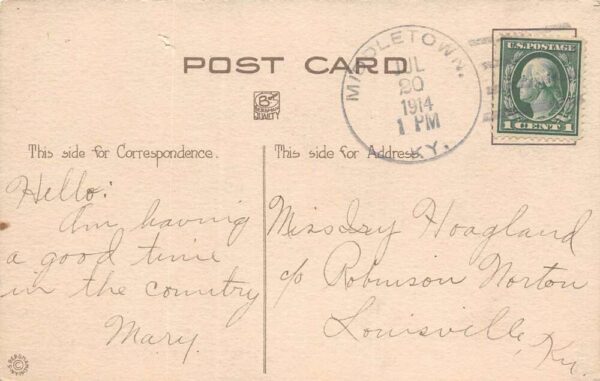 POST CARD
MIDDLETOWN,
JUL
20
1914
1 PM
KY.
U.S. POSTAGE
1 CENT 1
QUALITY
This side for Correspondence.
This side for Address.
Hello:
Am having
a good time
in the country
Mary.
Miss Izy Hoagland
c/o Robinson Norton
Louisville,
Ky.